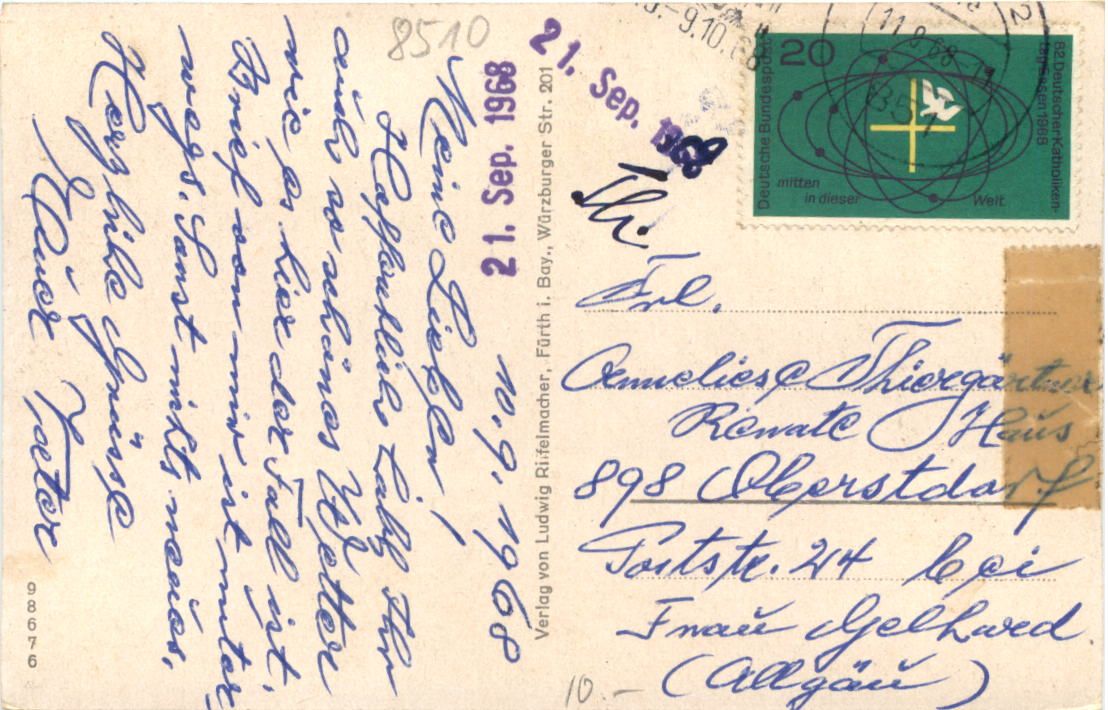 8510
10.9.1968
Meine Lieben!
Hoffentlich habt Ihr
auch so schönes Wetter
wie es hier der Fall ist.
Brief von mir ist unter
wegs. Sonst nichts neues.
Herzliche Grüsse
Euer Vater
98676
21. Sep. 1968
Verlag von Ludwig Riffelmacher, Fürth i. Bay., Würzburger Str. 201
21. Sep. 1968
-9.10.68
11.9.68-11
2
851
20
Deutsche Bundespost
82. Deutscher Katholiken-
tag Essen 1968
mitten
in dieser
Welt
Frl.
Anneliese Thiergärtner
Renate Haus
898 Oberstdorf
Poststr. 24 bei
Frau Gelhard
(Allgäu)
10.-